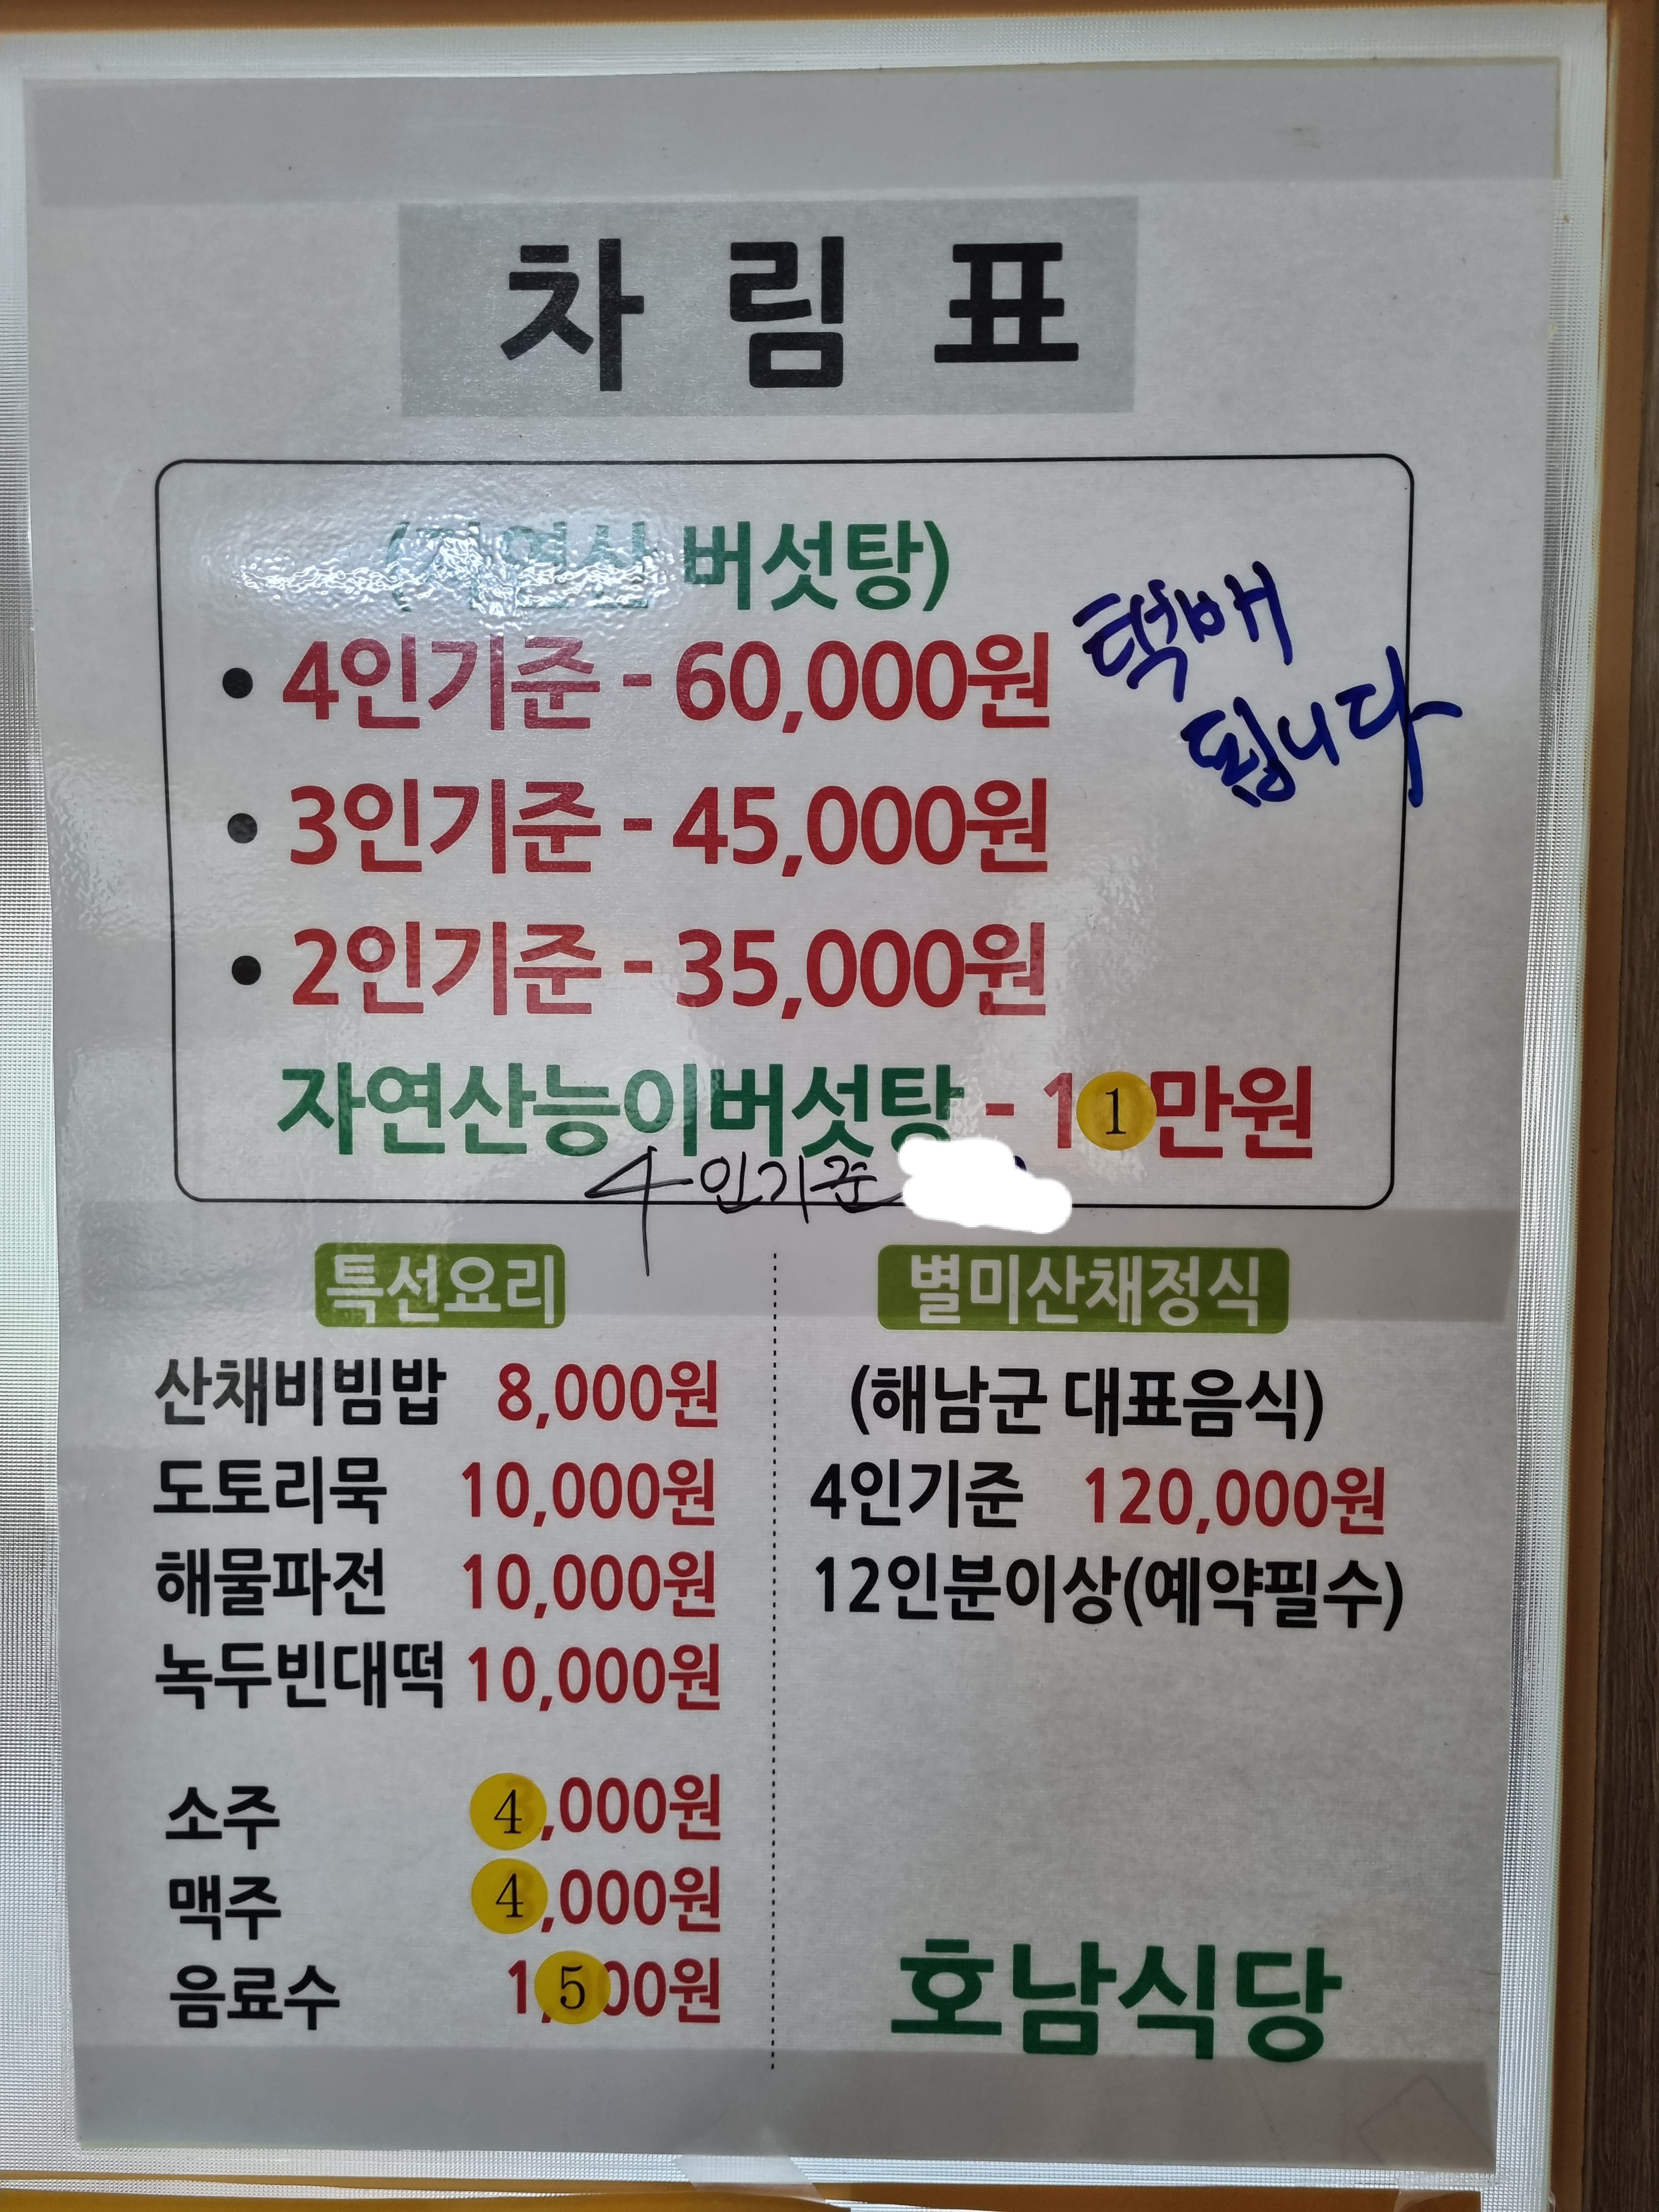 차림표
(자연산 버섯탕)
• 4인기준 - 60,000원
택배
됩니다
• 3인기준 - 45,000원
• 2인기준 - 35,000원
자연산능이버섯탕 - 11만원
4인기준
특선요리
산채비빔밥 8,000원
도토리묵 10,000원
해물파전 10,000원
녹두빈대떡 10,000원
소주 4,000원
맥주 4,000원
음료수 1,500원
별미산채정식
(해남군 대표음식)
4인기준 120,000원
12인분이상(예약필수)
호남식당